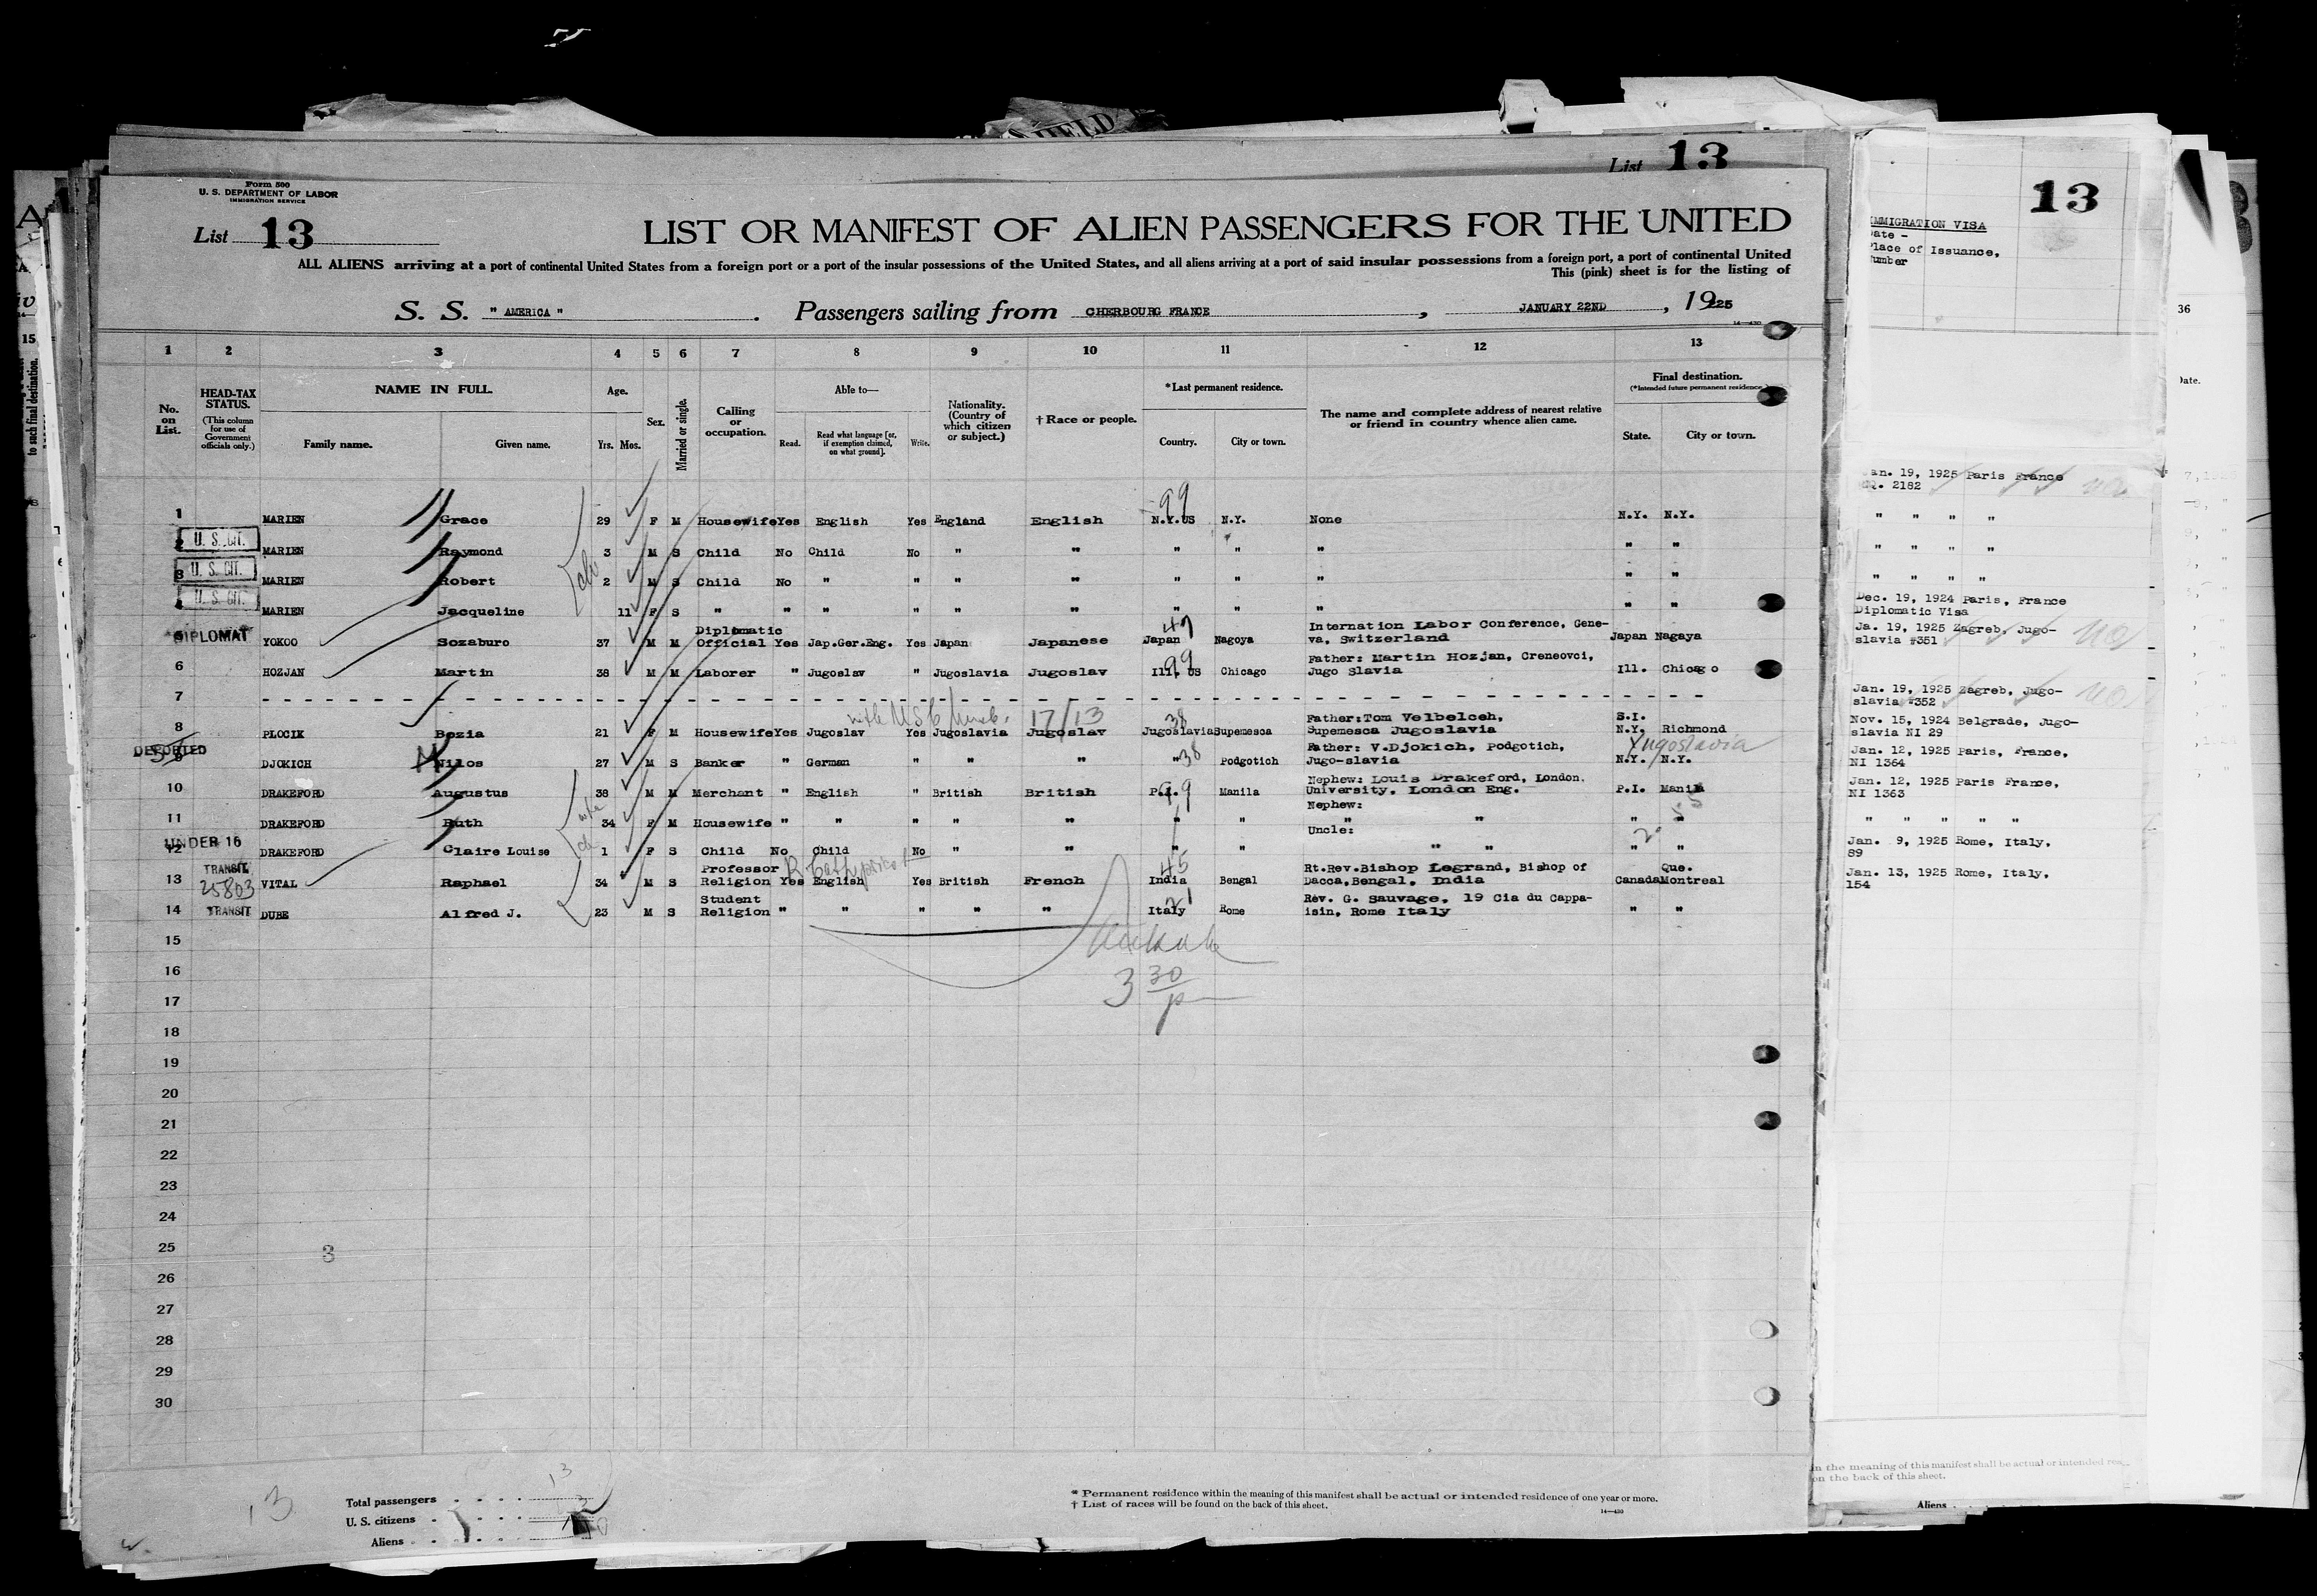 HELD
List 13
Form 500
U. S. DEPARTMENT OF LABOR
IMMIGRATION SERVICE
List 13
LIST OR MANIFEST OF ALIEN PASSENGERS FOR THE UNITED
ALL ALIENS arriving at a port of continental United States from a foreign port or a port of the insular possessions of the United States, and all aliens arriving at a port of said insular possessions from a foreign port, a port of continental United
This (pink) sheet is for the listing of
S. S. " AMERICA " . Passengers sailing from CHERBOURG FRANCE , JANUARY 22ND , 19225
14—430
1 2 3 4 5 6 7 8 9 10 11 12 13
No. on List.
HEAD-TAX STATUS.
(This column for use of Government officials only.)
NAME IN FULL
Family name. Given name.
Age.
Yrs. Mos.
Sex.
Married or single.
Calling or occupation.
Able to—
Read. Read what language [or, if exemption claimed, on what ground]. Write.
Nationality. (Country of which citizen or subject.)
† Race or people.
*Last permanent residence.
Country. City or town.
The name and complete address of nearest relative or friend in country whence alien came.
Final destination.
(*Intended future permanent residence.)
State. City or town.
99
1 MARIEN Grace 29 F M Housewife Yes English Yes England English N.Y.US N.Y. None N.Y. N.Y.
2 U. S. CIT. MARIEN Raymond 3 M S Child No Child No " " " " " " "
3 U. S. CIT. MARIEN Robert 2 M S Child No " " " " " " " " "
U. S. CIT. MARIEN Jacqueline 11 F S " " " " " " " " " " "
5 DIPLOMAT YOKOO Sozaburo 37 M M Diplomatic Official Yes Jap.Ger.Eng. Yes Japan Japanese Japan Nagoya International Labor Conference, Gene-
va, Switzerland Japan Nagaya
6 HOZJAN Martin 38 M M Laborer " Jugoslav " Jugoslavia Jugoslav Ill. US 99 Chicago Father: Martin Hozjan, Creneovci,
Jugo Slavia Ill. Chicago
7
17/13
8 PLOCIK Bozia 21 F M Housewife Yes Jugoslav Yes Jugoslavia Jugoslav 38 Jugoslavia Supemesca Father:Tom Velbelceh,
Supemesca Jugoslavia S.I. N.Y. Richmond
9 DEPORTED DJOKICH Milos 27 M S Banker " German " " " " 38 Podgotich Father: V.Djokich, Podgotich,
Jugo-slavia N.Y. N.Y. Yugoslavia
10 DRAKEFORD Augustus 38 M M Merchant " English " British British P.I. Manila Nephew: Louis Drakeford, London.
University, London Eng. P.I. Manila
11 DRAKEFORD Ruth 34 F M Housewife " " " " " " " Nephew:
" " " "
12 UNDER 16 DRAKEFORD Claire Louise 1 F S Child No Child No " " " " Uncle:
" " " "
13 TRANSIT 25803 VITAL Raphael 34 M S Professor Religion Yes English Yes British French 45 India Bengal Rt.Rev.Bishop Legrand, Bishop of
Dacca,Bengal, India Canada Que. Montreal
14 TRANSIT DUBE Alfred J. 23 M S Student Religion " " " " " 21 Italy Rome Rev. G. Sauvage, 19 Cia du Cappa-
isin, Rome Italy " "
15
16
3 30
17
18
19
20
21
22
23
24
25 3
26
27
28
29
30
13
Total passengers 13
U. S. citizens
Aliens
* Permanent residence within the meaning of this manifest shall be actual or intended residence of one year or more.
† List of races will be found on the back of this sheet.
14—430
13
IMMIGRATION VISA
Date -
Place of Issuance,
Number
Jan. 19, 1925 Paris France
2182
" " " "
" " " "
" " " "
Dec. 19, 1924 Paris, France
Diplomatic Visa
Ja. 19, 1925 Zagreb, Jugo-
slavia #351
Jan. 19, 1925 Zagreb, Jugo-
slavia #352
Nov. 15, 1924 Belgrade, Jugo-
slavia NI 29
Jan. 12, 1925 Paris, France,
NI 1364
Jan. 12, 1925 Paris France,
NI 1363
" " " " "
Jan. 9, 1925 Rome, Italy,
89
Jan. 13, 1925 Rome, Italy,
154
in the meaning of this manifest shall be actual or intended
on the back of this sheet.
Aliens
36
Date.
15
to such final destination.